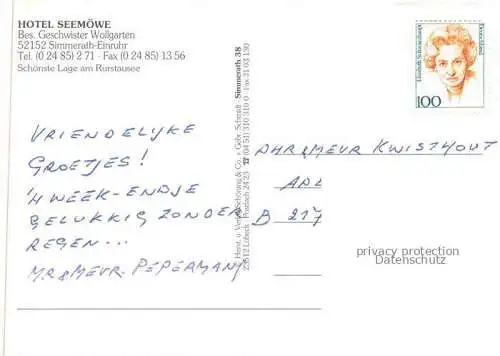 HOTEL SEEMÖWE
Bes. Geschwister Wollgarten
52152 Simmerath-Einruhr
Tel. (0 24 85) 2 71 - Fax (0 24 85) 13 56
Schönste Lage am Rurstausee
VRIENDELYKE
GROETJES!
'N WEEK-ENDJE
GELUKKIG ZONDER
REGEN...
MR & MEVR. PEPERMANS
Schöning & Co. + Gebr. Schmidt - Simmerath 38
23512 Lübeck Postfach 24 23 ☎ (04 51) 310 310 Fax 31 03 130
Deutschland
100
MEVR KWISTHOUT
APL
B 217
privacy protection
Datenschutz